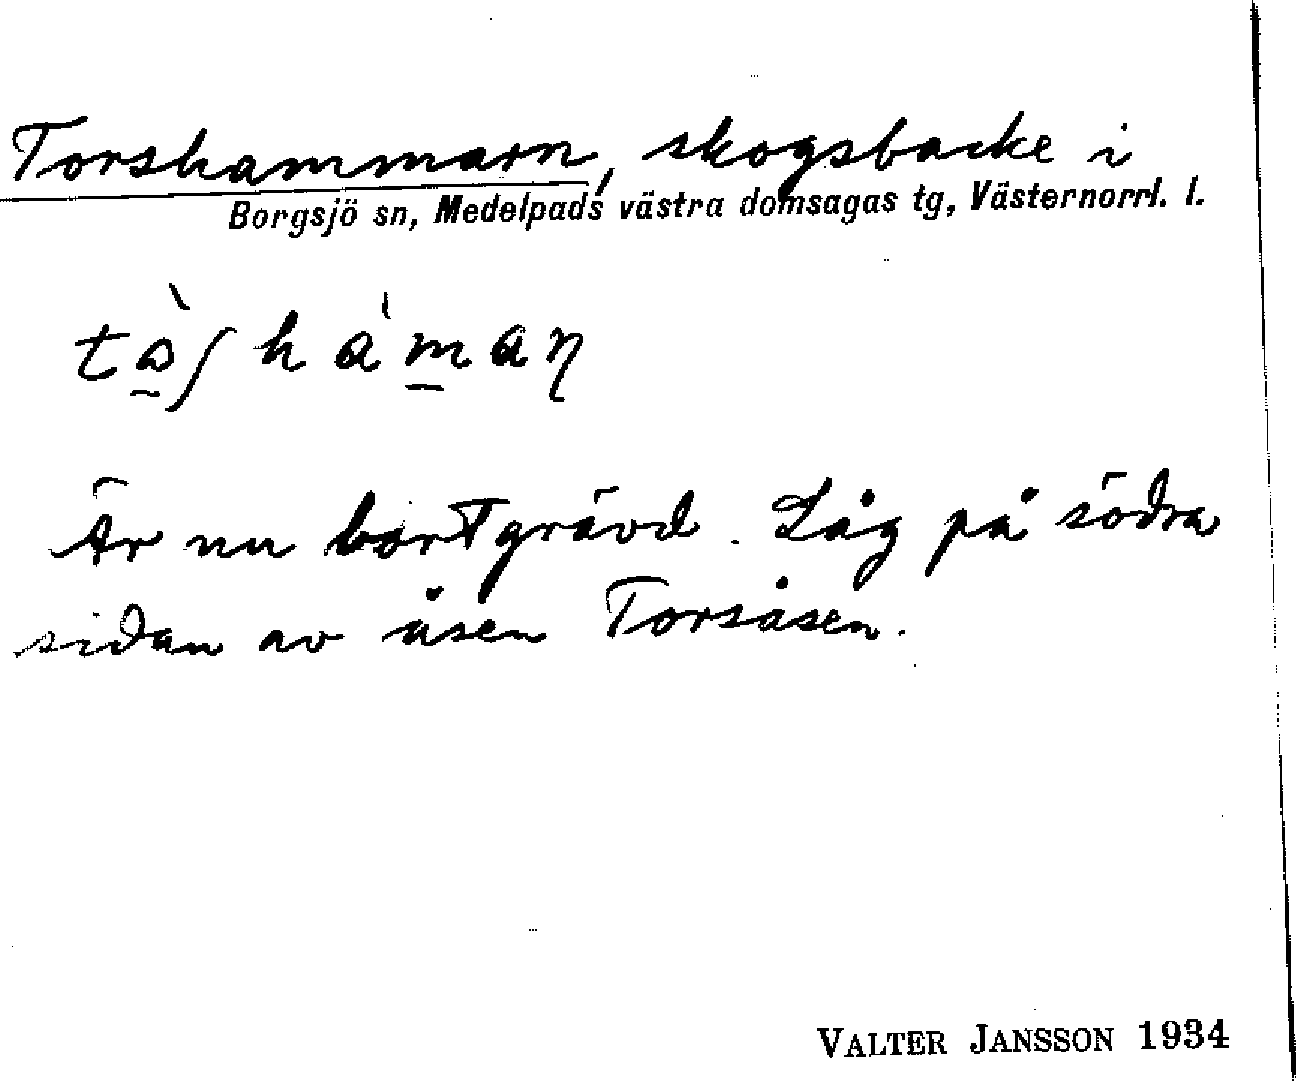 Torshammarn, skogsbacke i
Borgsjö sn, Medelpads västra domsagas tg, Västernorrl. l.
tà̰ʃhàm̱aɳ
Är nu bortgrävd. Låg på södra
sidan av åsen Torsåsen.
VALTER JANSSON 1934